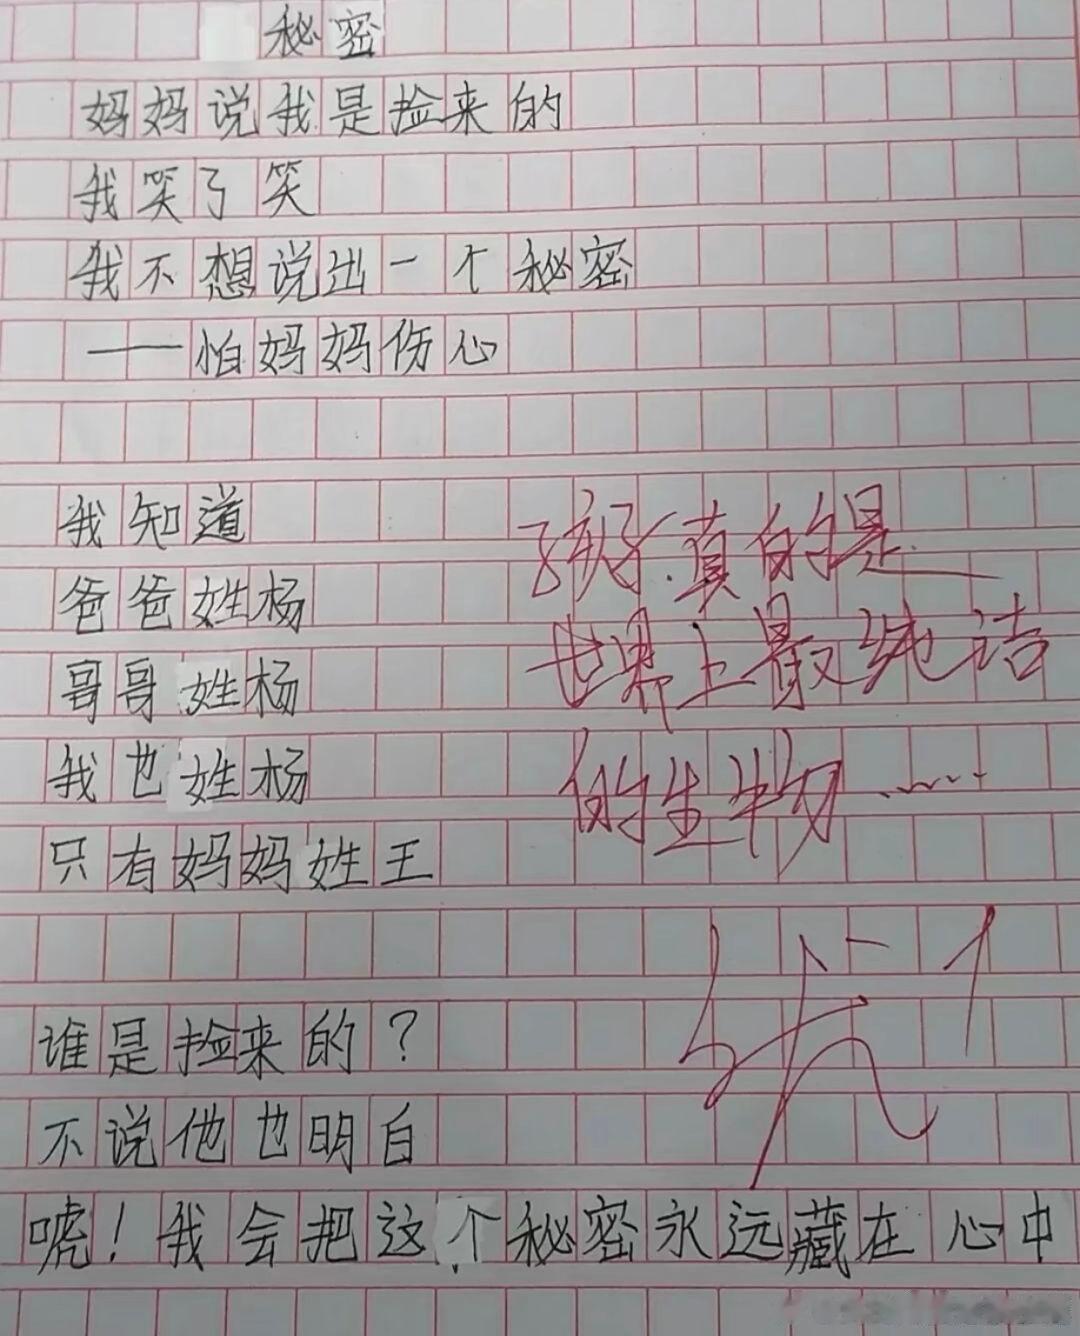 秘密
妈妈说我是捡来的
我笑了笑
我不想说出一个秘密
——怕妈妈伤心
我知道
爸爸姓杨
哥哥姓杨
我也姓杨
只有妈妈姓王
孩子真的是
世界上最纯洁
的生物……
优
谁是捡来的？
不说他也明白
唬！我会把这个秘密永远藏在心中